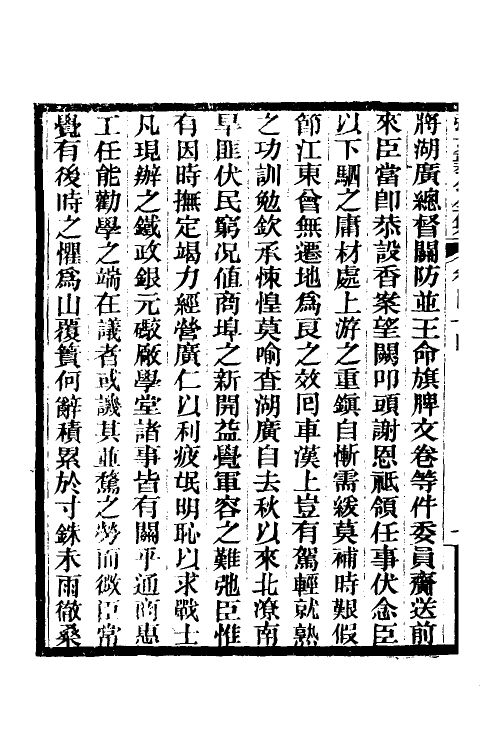 將湖廣總督關防並王命旗牌文卷等件委員齎送前
來臣當卽恭設香案望闕叩頭謝恩祗領任事伏念臣
以下駟之庸材處上游之重鎭自慚需緩莫補時艱假
節江東曾無遷地爲良之效囘車漢上豈有駕輕就熟
之功訓勉欽承悚惶莫喻查湖廣自去秋以來北潦南
旱匪伏民窮况值商埠之新開益覺軍容之難弛臣惟
有因時撫定竭力經營廣仁以利疲氓明恥以求戰士
凡現辦之鐵政銀元礮廠學堂諸事皆有關乎通商惠
工任能勸學之端在議者或譏其並騖之勞而微臣常
覺有後時之懼爲山覆簣何辭積累於寸銖未雨徹桑